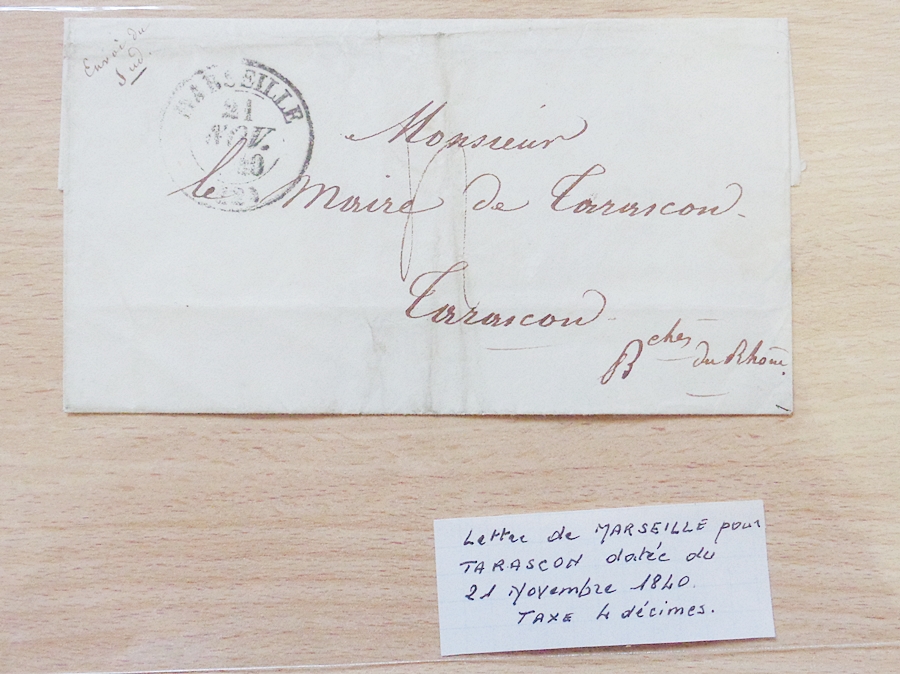 Envoi du
Sud.
MARSEILLE
21
NOV.
40
Monsieur
le Maire de Tarascon.
Tarascon
Bches du Rhône.
Lettre de MARSEILLE pour
TARASCON datée du
21 Novembre 1840.
TAXE 4 décimes.